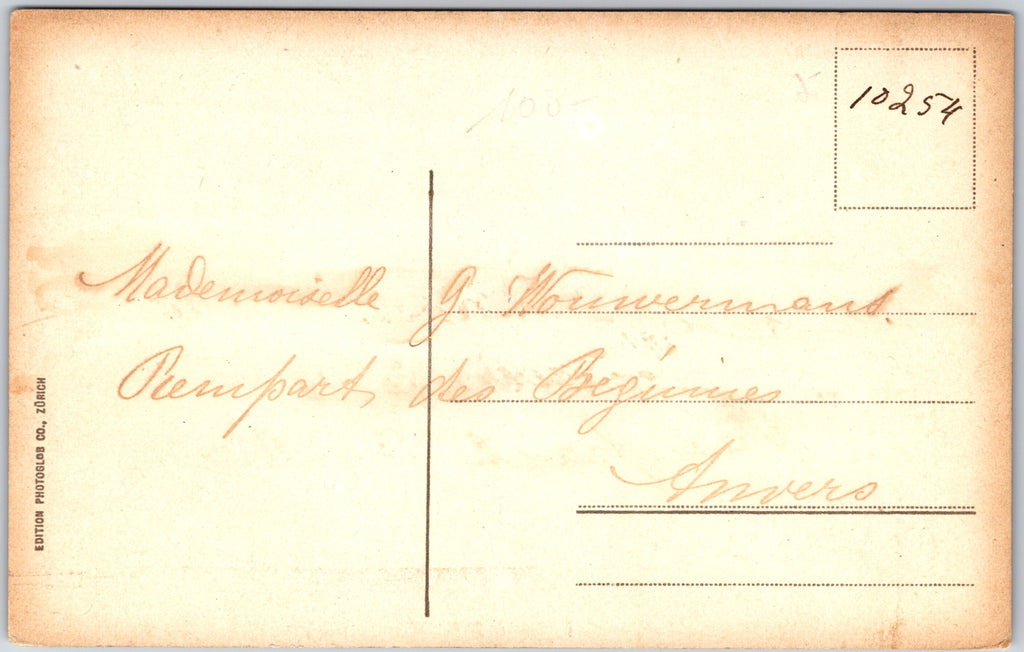 10254
100-
5
Mademoiselle G. Wouwermans
Rempart des Béguines
Anvers
EDITION PHOTOGLOB CO., ZÜRICH